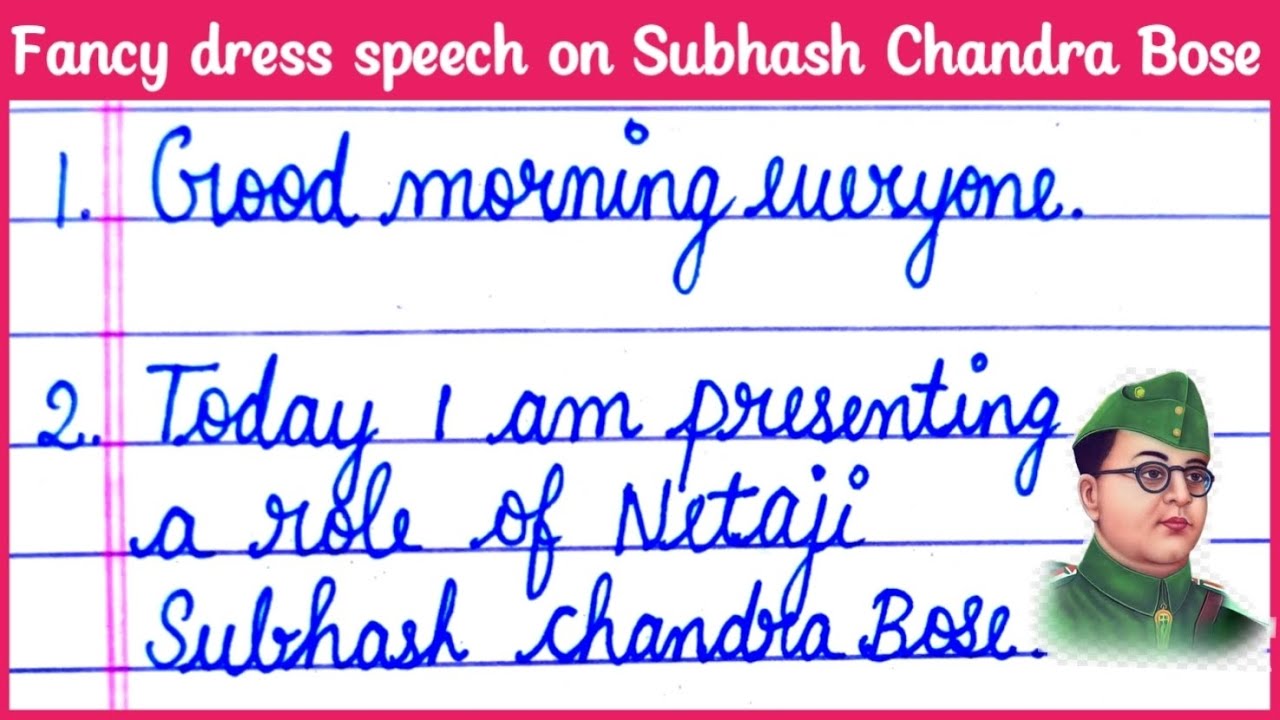 Fancy dress speech on Subhash Chandra Bose
1. Good morning everyone.
2. Today I am presenting
a role of Netaji
Subhash chandra Bose.